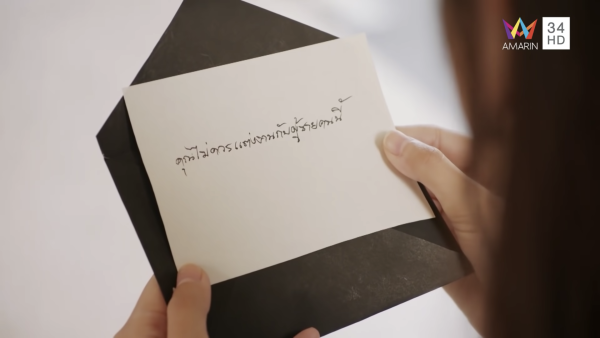 AMARIN
34
HD
คุณไม่ควรแต่งงานกับผู้ชายคนนี้